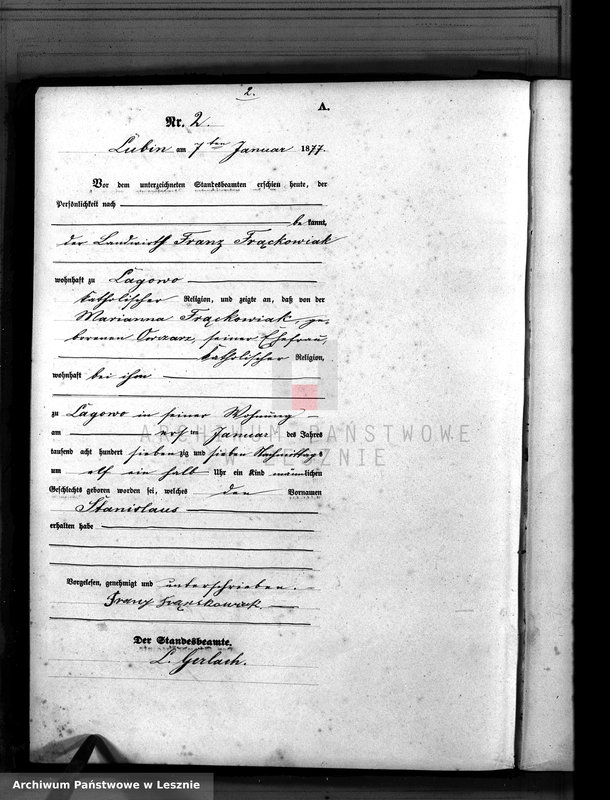 2.
A.
Nr. 2.
Lubin am 7ten Januar 1877.
Vor dem unterzeichneten Standesbeamten erschien heute, der
Persönlichkeit nach
be kannt,
der Landwirth Franz Frąckowiak
wohnhaft zu Lagowo
katholischer Religion, und zeigte an, daß von der
Marianna Frąckowiak, ge-
borenen seiner Ehefrau,
katholischer Religion,
wohnhaft bei ihm
zu Lagowo in seiner Wohnung
am ersten Januar des Jahres
tausend acht hundert sieben zig und sieben Nachmittags
um elf ein halb Uhr ein Kind männlichen
Geschlechts geboren worden sei, welches den Vornamen
Stanislaus
erhalten habe
Vorgelesen, genehmigt und unterschrieben.
Franz Frąckowiak
Der Standesbeamte.
L. Gerlach.
ARCHIWUM PAŃSTWOWE
W LESZNIE
Archiwum Państwowe w Lesznie